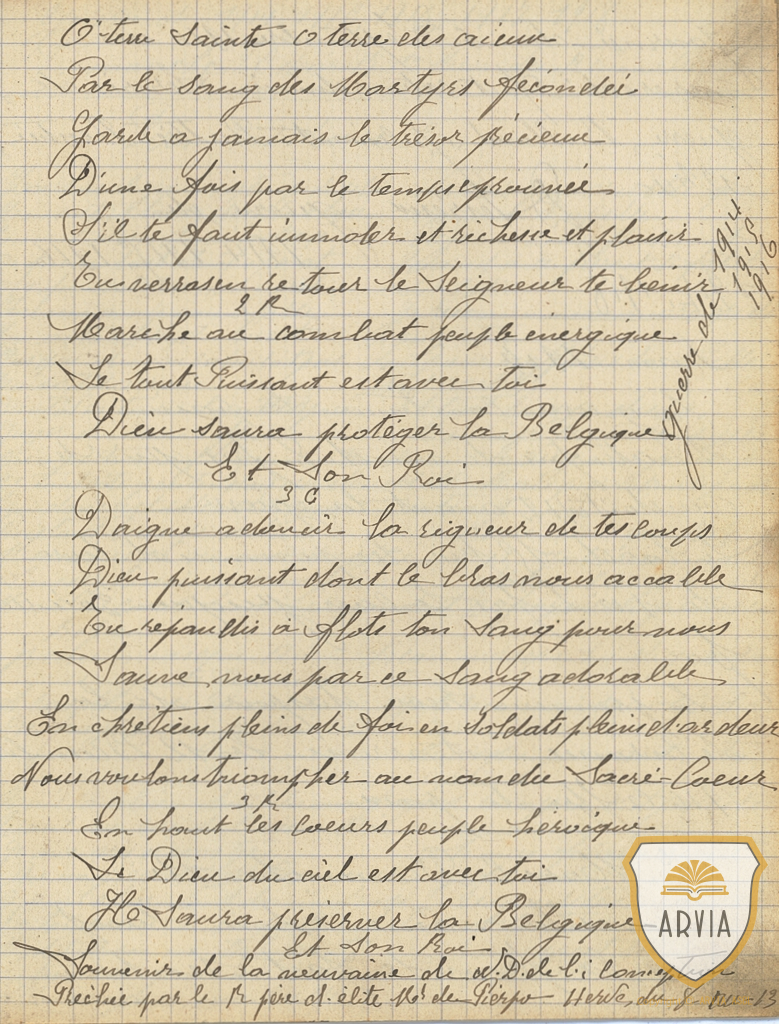 O terre Sainte O terre des aieux
Par le sang des Martyrs fécondeé
Garde a jamais le trésor précieux
D'une fois par le temps eprouvée
S'il te faut immoler et richesse et plaisir
Tu verras en retour le Seigneur te bénir
2 R
Marche au combat peuple énergique
Le tout Puissant est avec toi
Dieu saura protéger la Belgique
Et Son Roi
3 C
Daigne adoucir la rigueur de tes coups
Dieu puissant dont le bras nous accable
Tu répandis à flots ton Sang pour nous
Sauve nous par ce Sang adorable
En chrétiens pleins de foi en soldats pleins d'ardeur
Nous voulons triompher au nom du Sacré-Coeur
3 R
En haut les Coeurs peuple héroique
Le Dieu du ciel est avec toi
Il Saura préserver la Belgique
Et Son Roi
Souvenir de la neuvaine de N.D. de l'i
Prêchée par le R père d. élite de Herve, du 8 13
guerre de 1914.
1915
1916
ARVIA